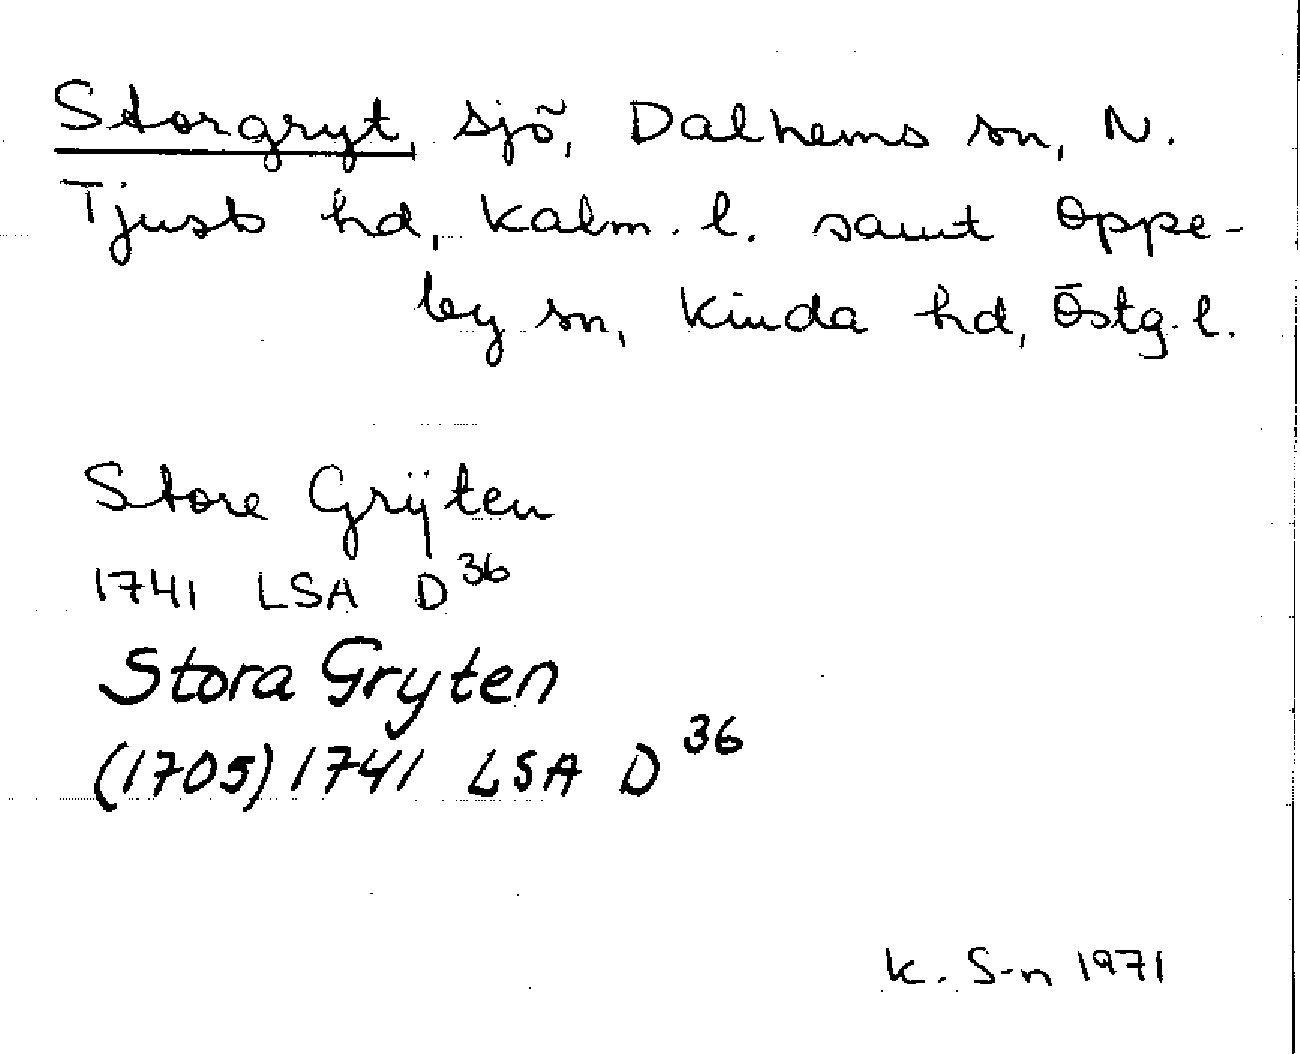 Storgryt, sjö, Dalhems sn, N.
Tjusts hd, Kalm. l. samt Oppe-
by sn, Kinda hd, Östg. l.
Store Grÿten
1741 LSA D36
Stora Gryten
(1705) 1741 LSA D36
K. S-n 1971